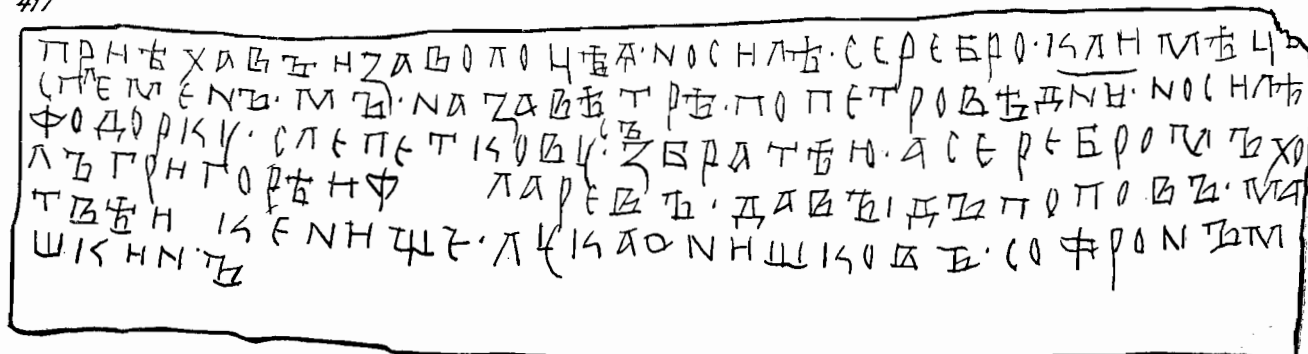 417
ПРИѢХАВЪИЗАВОЛОЦѢА·NОСИЛѢ·СЕРЕБРО·КЛИМѢЦЬ
СПЛЕМЕNЪ·МЪ·NАЗАВѢТРѢ·ПОПЕТРОВѢДNИ·NОСИЛѢ
ФОДОРКУ·СЛЕПЕТКОВУ·ЗБРАТѢЮ·АСЕРЕБРОМЪХО
ЛЪГРИГОРѢИФ ЛАРЕВЪ·ДАВЪІДЪПОПОВЪ·МА
ТВѢИ КЕNИЦЕ·ЛУКАОNИШКОВЪ·СОФРОNЪМ
ШКИN·Ъ